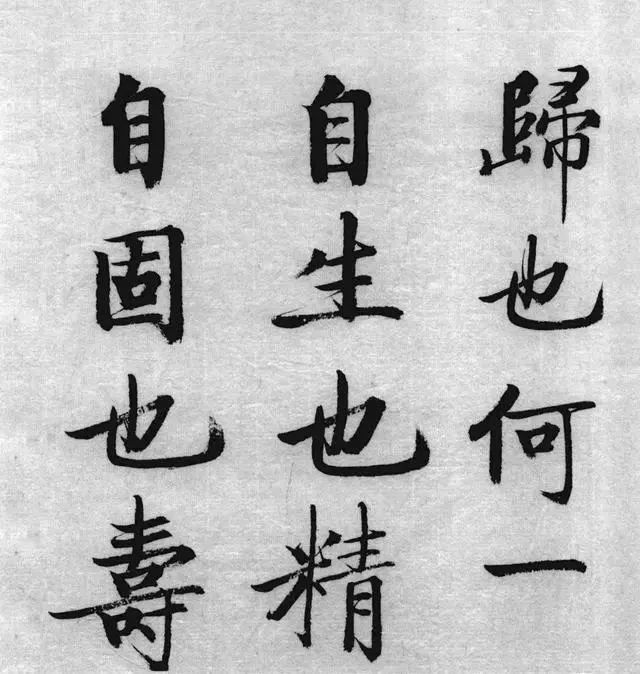 歸也何一
自生也精
自固也壽